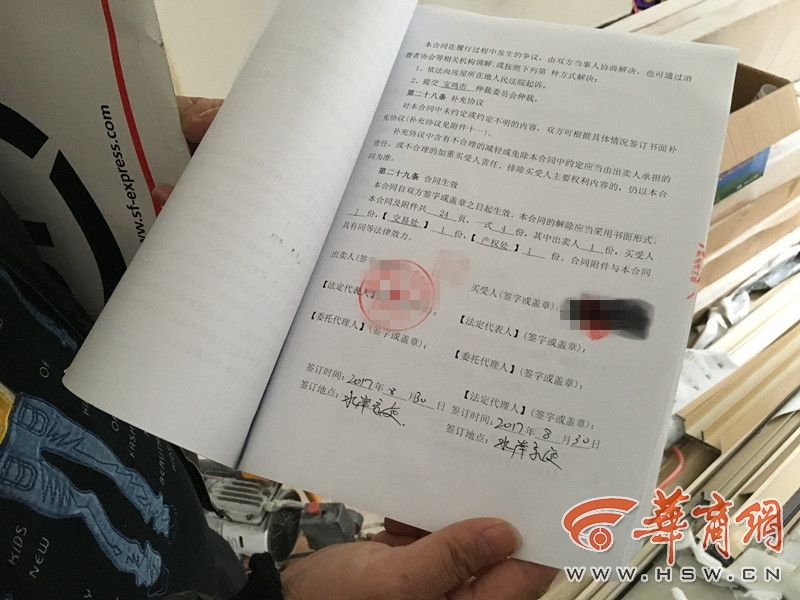 本合同在履行过程中发生的争议，由双方当事人协商解决，也可通过消
费者协会等相关机构调解；或按照下列第 种方式解决：
1、依法向房屋所在地人民法院起诉。
2、提交 宝鸡市 仲裁委员会仲裁。
第二十八条 补充协议
对本合同中未约定或约定不明的内容，双方可根据具体情况签订书面补
充协议(补充协议见附件十一)。
补充协议中含有不合理的减轻或免除本合同中约定应当由出卖人承担的
责任，或不合理的加重买受人责任、排除买受人主要权利内容的，仍以本合
同为准。
第二十九条 合同生效
本合同自双方签字或盖章之日起生效。本合同的解除应当采用书面形式。
本合同及附件共 24 页，一式 4 份，其中出卖人 1 份，买受人
1 份，【 交易处 】 1 份，【 产权处 】 1 份。合同附件与本合同
具有同等法律效力。
出卖人(签字
买受人(签字或盖章)：
【法定代表人】
【法定代表人】(签字或盖章)：
【委托代理人】(签字或盖章)：
【委托代理人】(签字或盖章)：
【法定代理人】(签字或盖章)：
签订时间：2017年 8 月30 日
签订时间：2017年 8 月30日
签订地点：
签订地点：
www.sf-express.com
OF
KIDS
NEW
華商網
WWW.HSW.CN